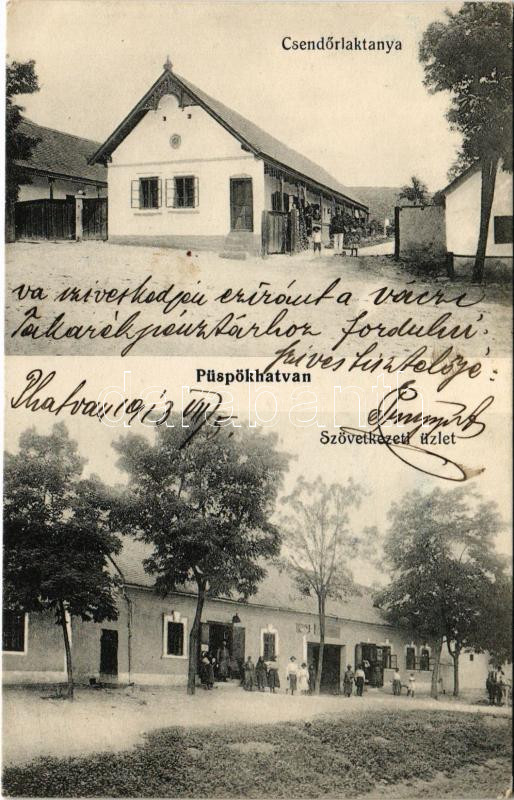 Csendőrlaktanya
va sziveskedjen ezíránt a váczi
Takarékpénztárhoz fordulni.
Szives tisztelője:
Püspökhatvan
darabanth
Phatvan 1913
Szövetkezeti üzlet